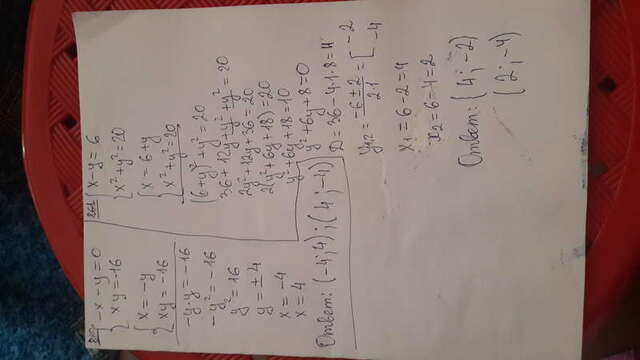 { -x-y=0
xy=-16
{ x=-y
xy=-16
-y·y=-16
-y²=-16
y²=16
y=±4
x=-4
x=4
Ответ: (-4;4);(4;-4)
861 { x-y=6
x²+y²=20
{ x=6+y
x²+y²=20
(6+y)²+y²=20
36+12y+y²+y²=20
2y²+12y+36=20
2(y²+6y+18)=20
y²+6y+18=10
y²+6y+8=0
D=36-4·1·8=4
y1,2=-6±2/2·1=[-2
-4
x1=6-2=4
x2=6-4=2
Ответ: (4;-2)
(2;-4)